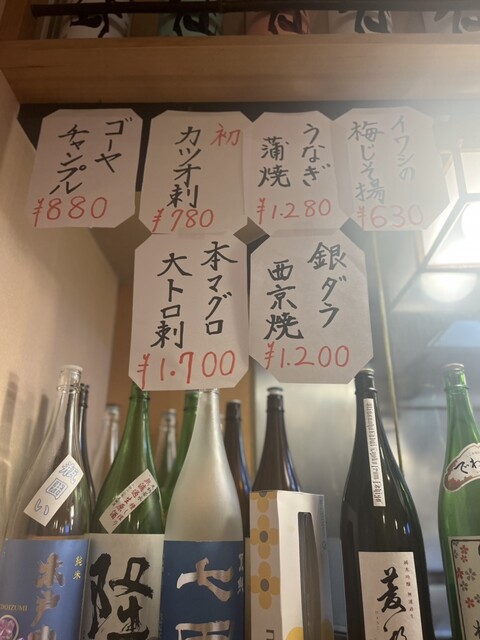 ゴーヤ
チャンプル
¥880
初
カツオ刺
¥780
うなぎ
蒲焼
¥1.280
イワシの
梅じそ揚
¥630
本マグロ
大トロ刺
¥1.700
銀ダラ
西京焼
¥1.200
純米
陸
七田
純米吟醸 無濾過
菱湖
でわ